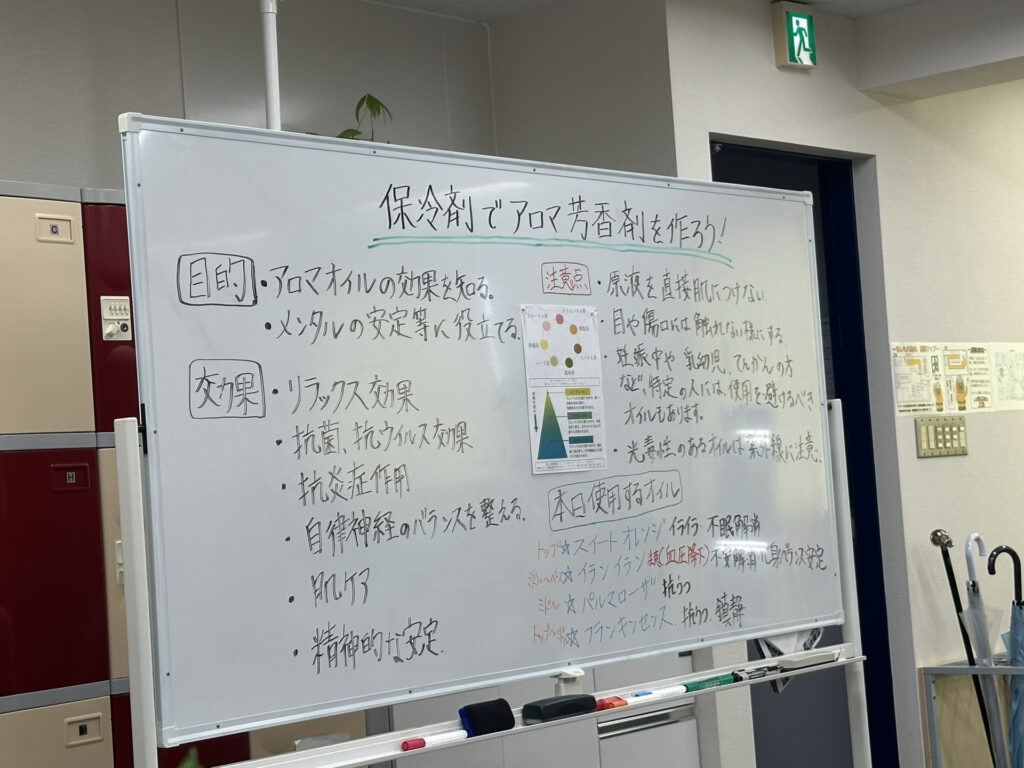 保冷剤でアロマ芳香剤を作ろう!
目的
・アロマオイルの効果を知る。
・メンタルの安定等に役立てる。
効果
・リラックス効果
・抗菌、抗ウイルス効果
・抗炎症作用
・自律神経のバランスを整える。
・肌ケア
・精神的な安定.
注意点
・原液を直接肌につけない
・目や傷口には触れない様にする。
・妊娠中や乳幼児、てんかんの方
など特定の人には、使用を避けるべき
オイルもあります。
・光毒性のあるオイルは紫外線に注意。
本日使用するオイル
トップ☆スイートオレンジ イライラ・不眠解消
☆イランイラン (血圧降下)不安解消 心身バランス安定
ミドル☆パルマローザ 抗うつ
☆フランキンセンス 抗うつ. 鎮静
G
H